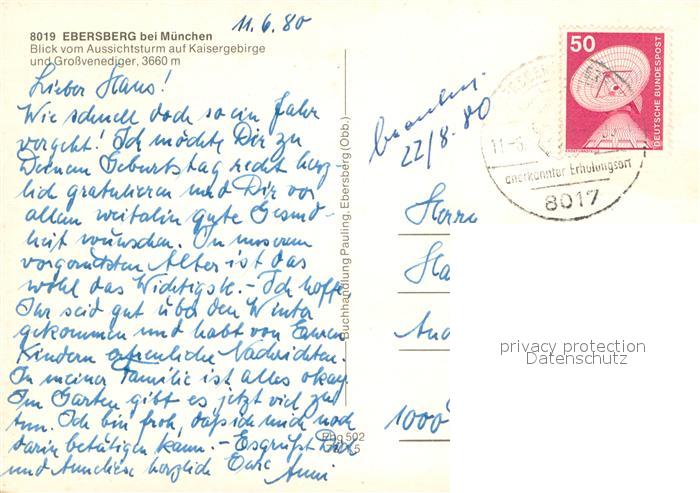 11.6.80
8019 EBERSBERG bei München
Blick vom Aussichtsturm auf Kaisergebirge
und Großvenediger, 3660 m
Lieber Hans!
Wie schnell doch so ein Jahr
vergeht! Ich möchte Dir zu
Deinem Geburtstag recht herz-
lich gratulieren und Dir vor
allem weiterhin gute Gesund-
heit wünschen. In unserem
vorgerückten Alter ist das
wohl das Wichtigste. - Ich hoffe
Ihr seid gut über den Winter
gekommen und habt von Euren
Kindern erfreuliche Nachrichten.
In meiner Familie ist alles okay.
Im Garten gibt es jetzt viel zu
tun. Ich bin froh, daß ich mich noch
darin betätigen kann. - Es grüßt Dich
und Anneliese herzlich Eure Anni
Buchhandlung Pauling, Ebersberg (Obb.)
502
5
22/8.80
50
DEUTSCHE BUNDESPOST
11.-6.
anerkannter Erholungsort
8017
Herrn
Ha
And
1000
privacy protection
Datenschutz